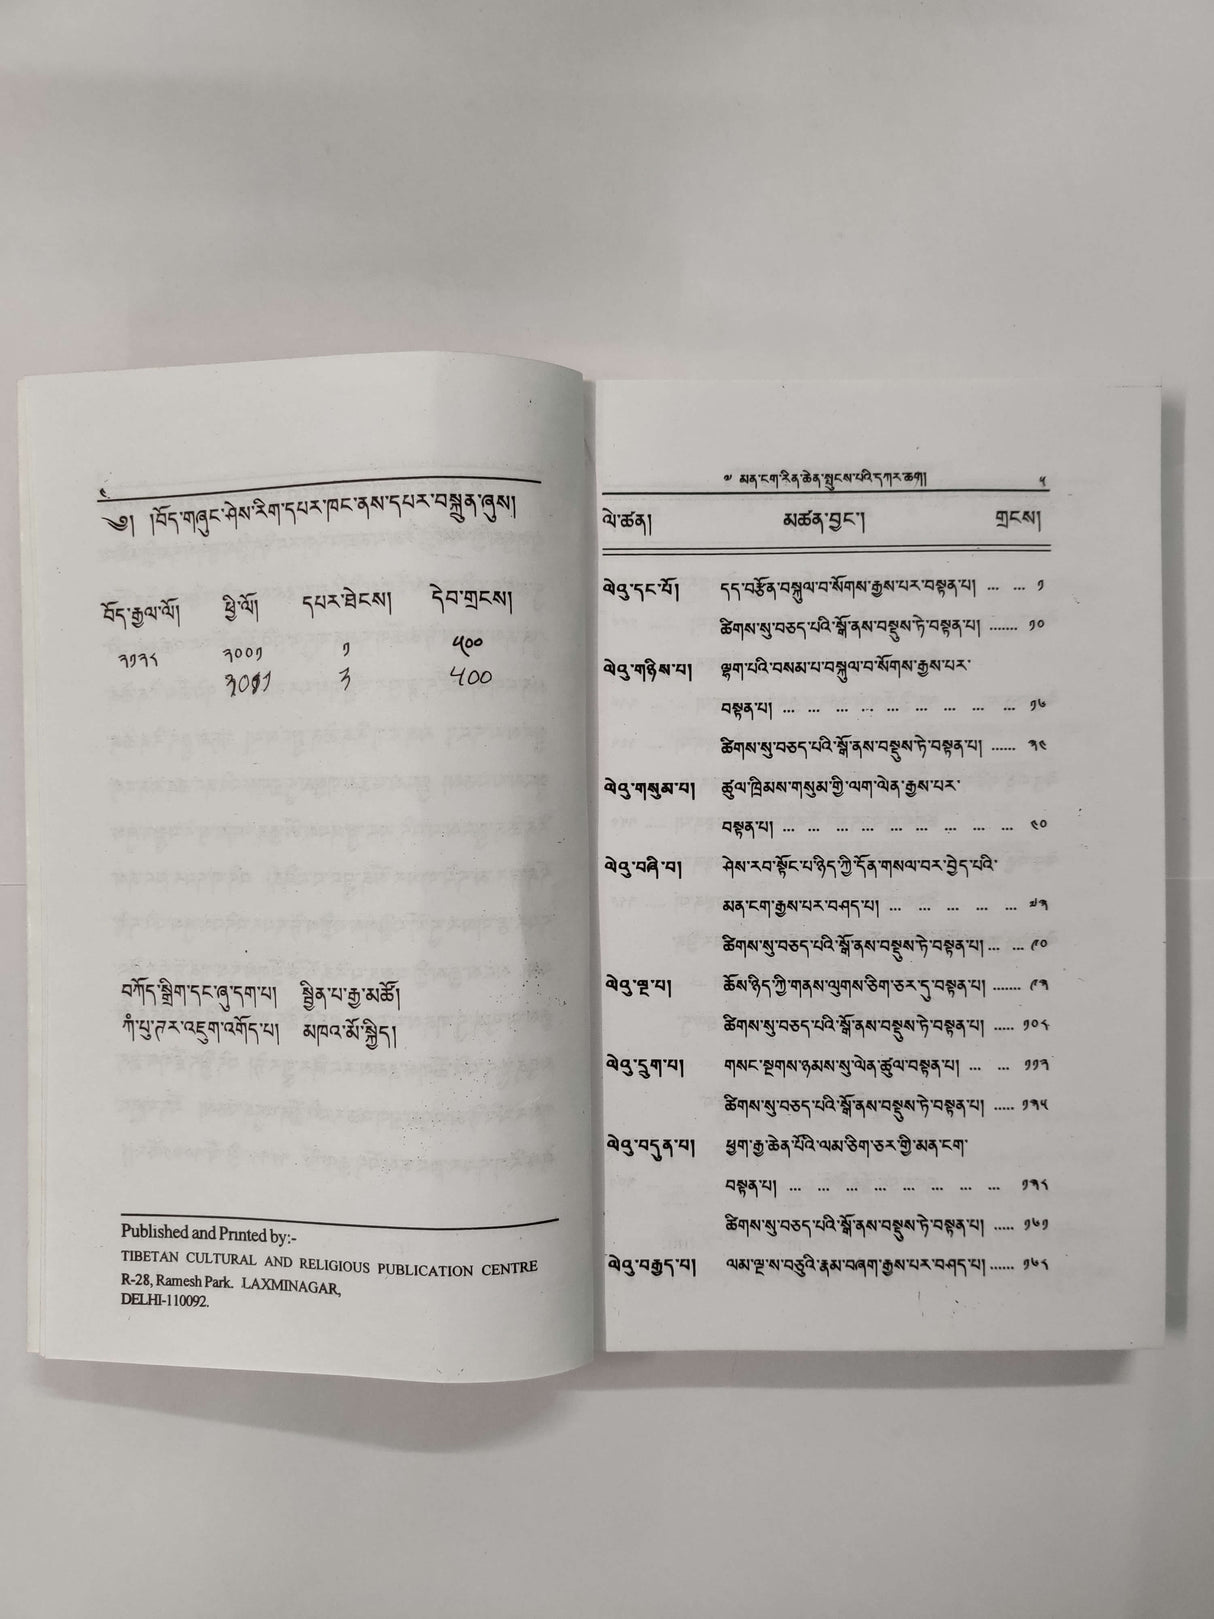 ༤
༄༅། །བོད་གཞུང་ཤེས་རིག་དཔར་ཁང་ནས་དཔར་བསྐྲུན་ཞུས།
བོད་རྒྱལ་ལོ། ཕྱི་ལོ། དཔར་ཐེངས། དེབ་གྲངས།
༢༡༢༨ ༢༠༠༡ ༡ ༥༠༠
༢༠༡༡ ༢ ༥༠༠
བཀོད་སྒྲིག་དང་ཞུ་དག་པ། སྦྱིན་པ་རྒྱ་མཚོ།
ཀཾ་པུ་ཊར་འཇུག་འགོད་པ། མཁའ་མོ་སྐྱིད།
Published and Printed by:-
TIBETAN CULTURAL AND RELIGIOUS PUBLICATION CENTRE
R-28, Ramesh Park. LAXMINAGAR,
DELHI-110092.
༧ མན་ངག་རིན་ཆེན་སྤུངས་པའི་དཀར་ཆག། ༥
ལེ་ཚན། མཚན་བྱང་། གྲངས།
ལེའུ་དང་པོ། དད་བརྩོན་བསྐུལ་བ་སོགས་རྒྱས་པར་བསྟན་པ། ... ... ༡
ཚིགས་སུ་བཅད་པའི་སྒོ་ནས་བསྡུས་ཏེ་བསྟན་པ། ....... ༡༠
ལེའུ་གཉིས་པ། ལྷག་པའི་བསམ་པ་བསྐུལ་བ་སོགས་རྒྱས་པར་
བསྟན་པ། ... ... ... ... ... ... ... ... ... ༡༦
ཚིགས་སུ་བཅད་པའི་སྒོ་ནས་བསྡུས་ཏེ་བསྟན་པ། ...... ༣༤
ལེའུ་གསུམ་པ། ཚུལ་ཁྲིམས་གསུམ་གྱི་ལག་ལེན་རྒྱས་པར་
བསྟན་པ། ... ... ... ... ... ... ... ... ... ༤༠
ལེའུ་བཞི་བ། ཤེས་རབ་སྟོང་པ་ཉིད་ཀྱི་དོན་གསལ་བར་བྱེད་པའི་
མན་ངག་རྒྱས་པར་བཤད་པ། ... ... ... ... ... ༧༣
ཚིགས་སུ་བཅད་པའི་སྒོ་ནས་བསྡུས་ཏེ་བསྟན་པ། ... ... ༩༠
ལེའུ་ལྔ་པ། ཆོས་ཉིད་ཀྱི་གནས་ལུགས་ཅིག་ཅར་དུ་བསྟན་པ། ....... ༩༣
ཚིགས་སུ་བཅད་པའི་སྒོ་ནས་བསྡུས་ཏེ་བསྟན་པ། ..... ༡༠༨
ལེའུ་དྲུག་པ། གསང་སྔགས་ཉམས་སུ་ལེན་ཚུལ་བསྟན་པ། ... ... ༡༡༣
ཚིགས་སུ་བཅད་པའི་སྒོ་ནས་བསྡུས་ཏེ་བསྟན་པ། ..... ༡༣༥
ལེའུ་བདུན་པ། ཕྱག་རྒྱ་ཆེན་པོའི་ལམ་ཅིག་ཅར་གྱི་མན་ངག་
བསྟན་པ། ... ... ... ... ... ... ... ... ༡༣༨
ཚིགས་སུ་བཅད་པའི་སྒོ་ནས་བསྡུས་ཏེ་བསྟན་པ། ..... ༡༦༡
ལེའུ་བརྒྱད་པ། ལམ་ལྔ་ས་བཅུའི་རྣམ་བཞག་རྒྱས་པར་བཤད་པ། ...... ༡༦༨